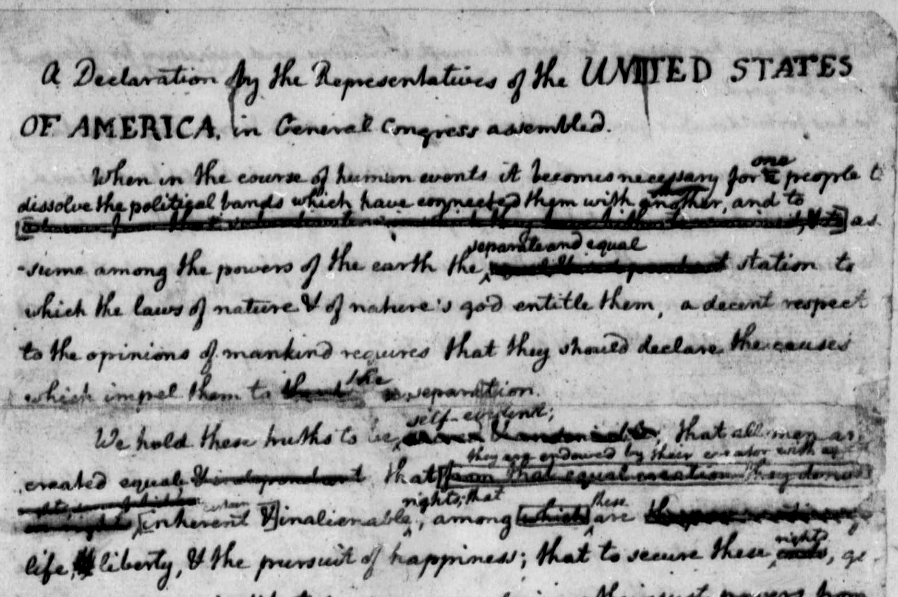 A Declaration by the Representatives of the UNITED STATES
OF AMERICA, in General Congress assembled.
When in the course of human events it becomes necessary for one people t
dissolve the political bands which have connected them with another, and to
as
-sume among the powers of the earth the
separate and equal
station to
which the laws of nature & of nature's god entitle them, a decent respect
to the opinions of mankind requires that they should declare the causes
which impel them to the separation.
self-evident;
We hold these truths to be, that all men ar
they are endowed by their creator with
created equal & independent that [from that equal creation they derive
certain
rights; that
these
[inherent &] inalienable, among [which] are
rights
life, liberty, & the pursuit of happiness; that to secure these, go
powers from